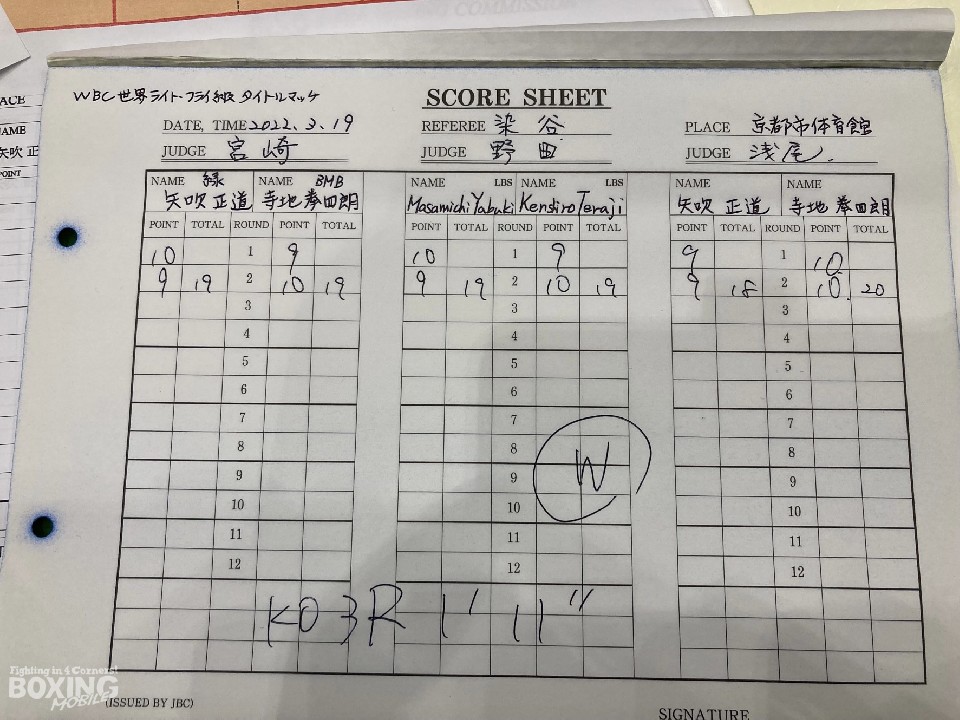 T COMMISSION
ACE
AME
矢吹 正
POINT
WBC世界ライト・フライ級 タイトルマッチ
SCORE SHEET
DATE, TIME 2022.3.19 REFEREE 染谷 PLACE 京都市体育館
JUDGE 宮崎 JUDGE 野田 JUDGE 浅尾
NAME 緑 NAME BMB NAME LBS NAME LBS NAME NAME
矢吹 正道 寺地 拳四朗 Masamichi Yabuki Kenshiro Teraji 矢吹 正道 寺地 拳四朗
POINT TOTAL ROUND POINT TOTAL POINT TOTAL ROUND POINT TOTAL POINT TOTAL ROUND POINT TOTAL
10 1 9 10 1 9 9 1 10
9 19 2 10 19 9 19 2 10 19 9 18 2 10 20
3 3 3
4 4 4
5 5 5
6 6 6
7 7 7
8 8 8
9 W 9 9
10 10 10
11 11 11
12 12 12
KO 3R 1' 11"
Fighting in 4 Corners!
BOXING
MOBILE
(ISSUED BY JBC)
SIGNATURE